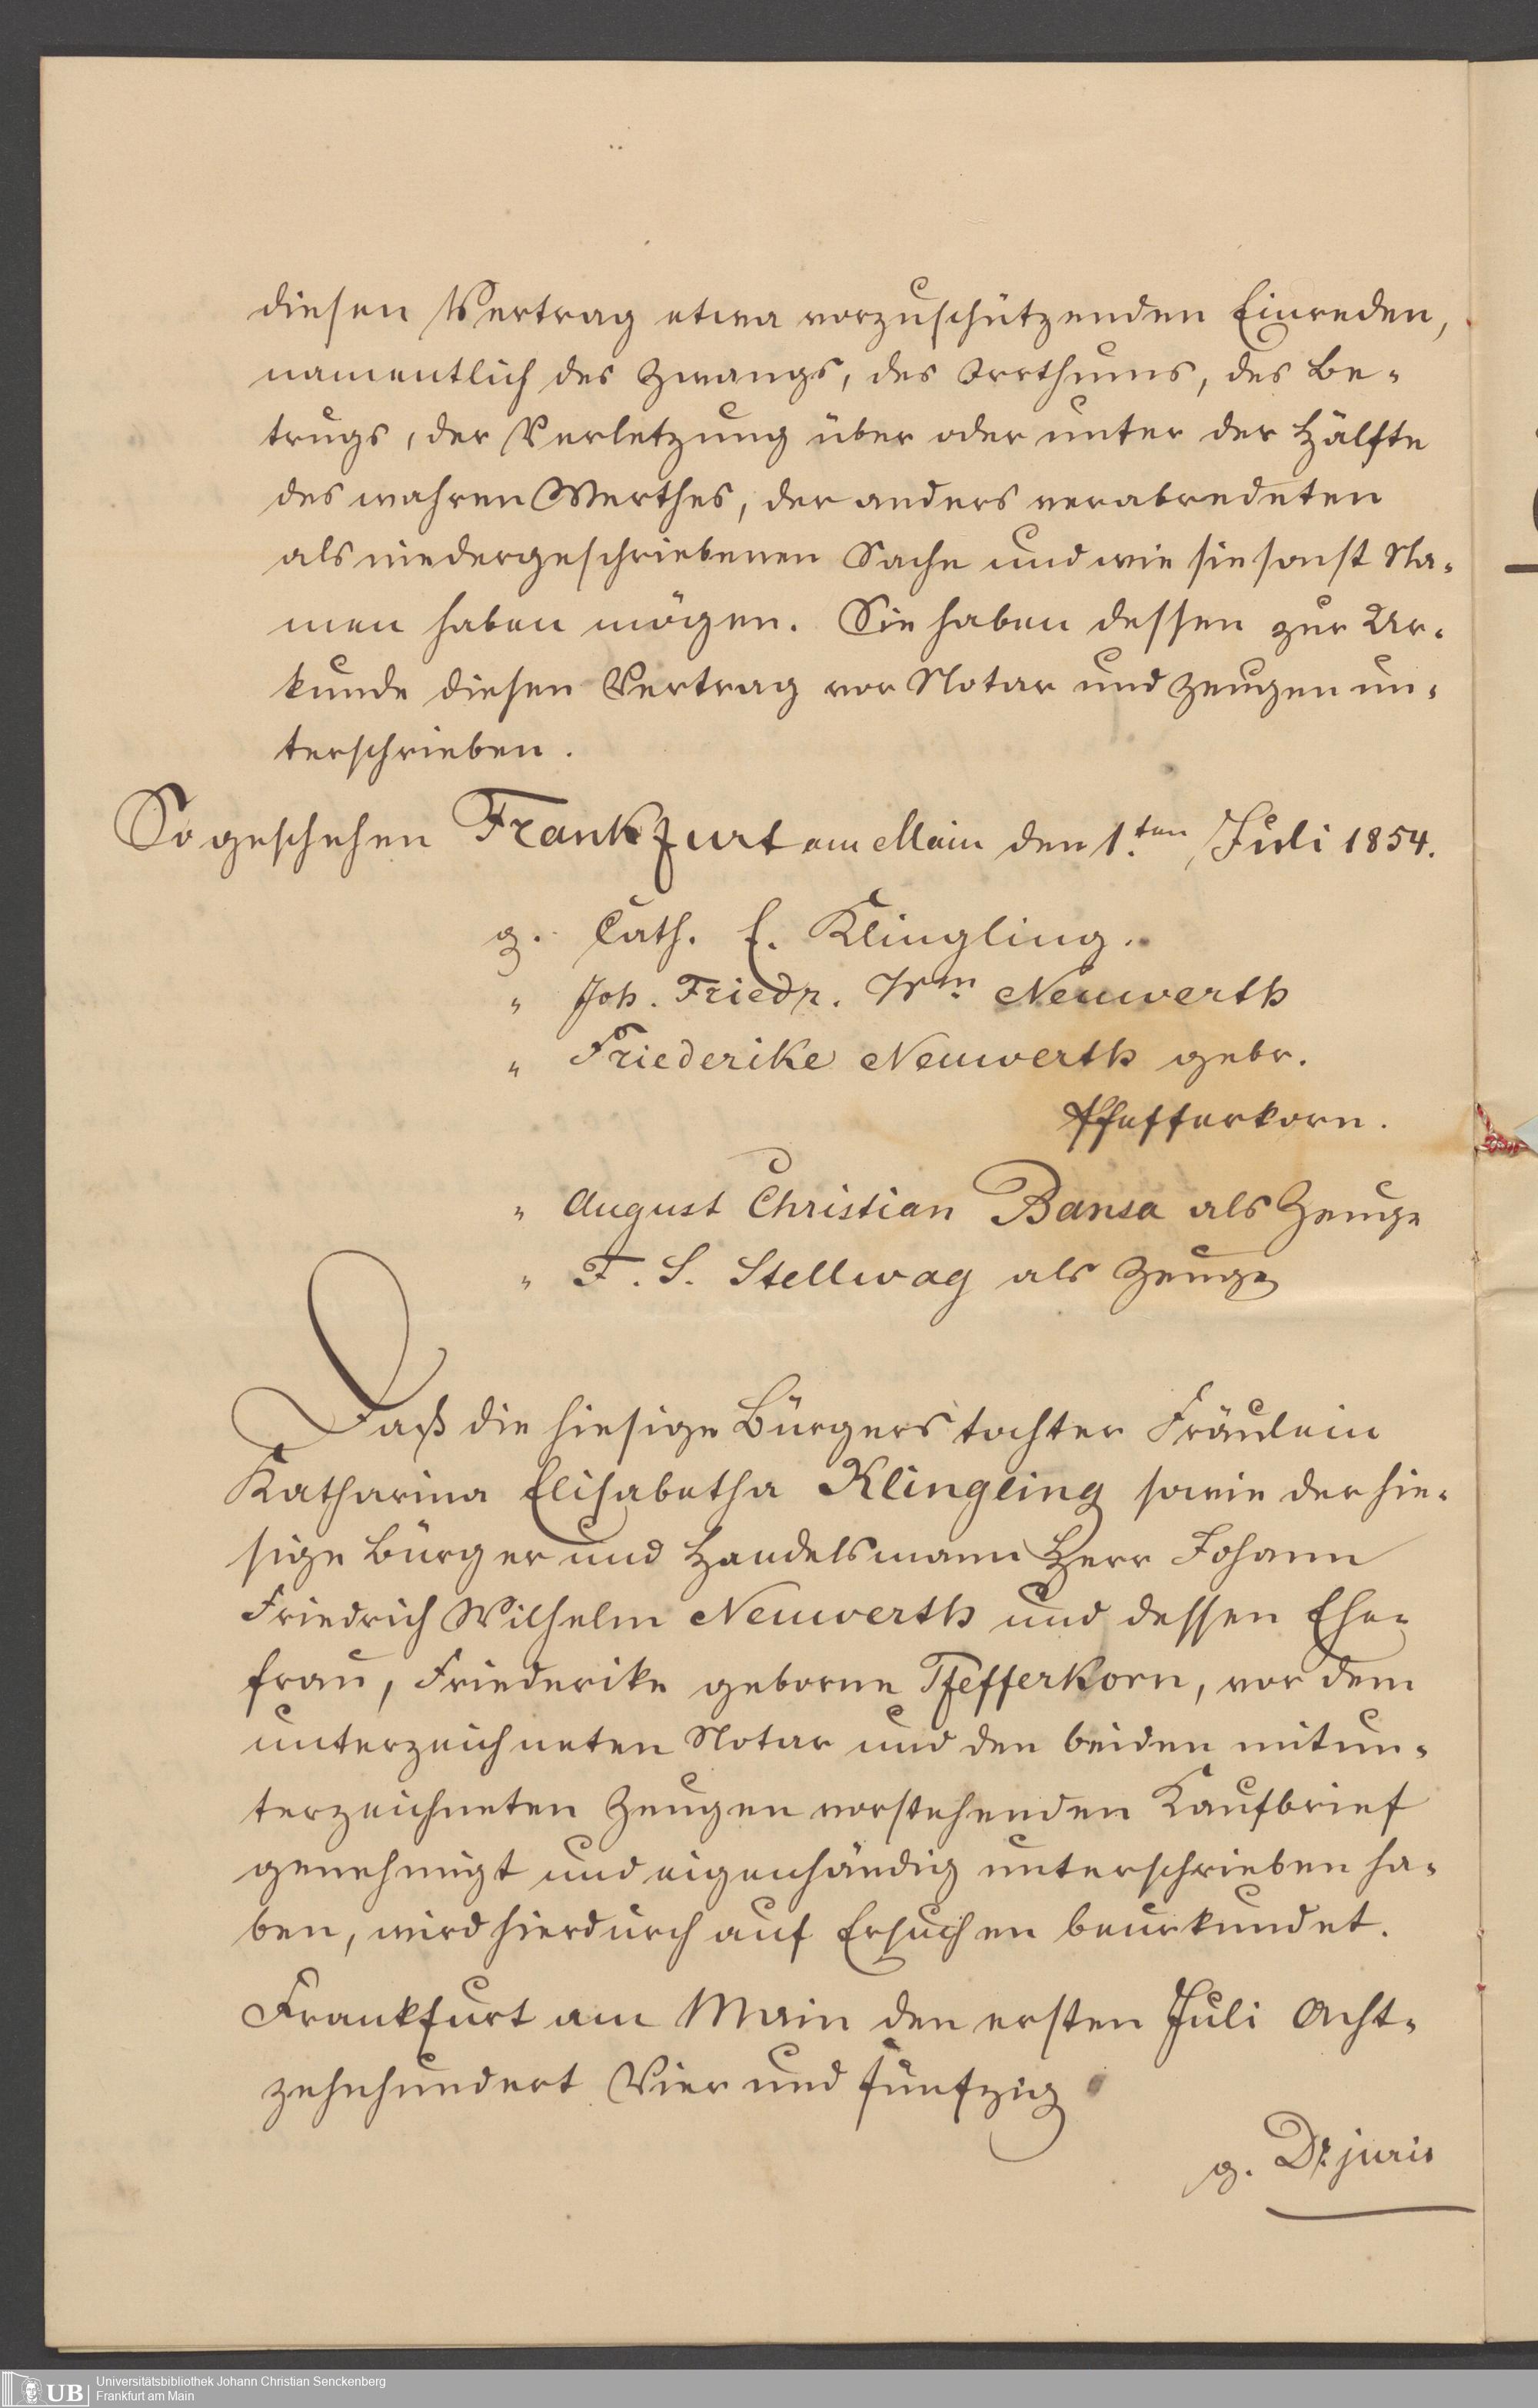 diesen Vertrag etwa vorzuschützenden Einreden,
namentlich des Zwangs, des Irrthums, des Be-
trugs, der Verletzung über oder unter der Hälfte
des wahren Werthes, der anders verabredeten
als niedergeschriebenen Sache und wie sie sonst Na-
men haben mögen. Sie haben dessen zur Ur-
kunde diesen Vertrag vor Notar und Zeugen un-
terschrieben.
So geschehen Frankfurt am Main den 1.ten Juli 1854.
g. Cath. E. Klingling.
" Joh. Friedr. Wm. Neuwerth
" Friederike Neuwerth gebr.
Pfefferkorn.
" August Christian Bansa als Zeuge
" F. S. Stellwag als Zeuge
Daß die hiesige Bürgerstochter Fräulein
Katharina Elisabetha Klingling sowie der hie-
sige Bürger und Handelsmann Herr Johann
Friedrich Wilhelm Neuwerth und dessen Ehe-
frau, Friederike geborne Pfefferkorn, vor dem
unterzeichneten Notar und den beiden mitun-
terzeichneten Zeugen vorstehenden Kaufbrief
genehmigt und eigenhändig unterschrieben ha-
ben, wird hierdurch auf Ersuchen beurkundet.
Frankfurt am Main den ersten Juli Acht-
zehnhundert Vier und fünfzig
g. Dr. juris
UB
Universitätsbibliothek Johann Christian Senckenberg
Frankfurt am Main